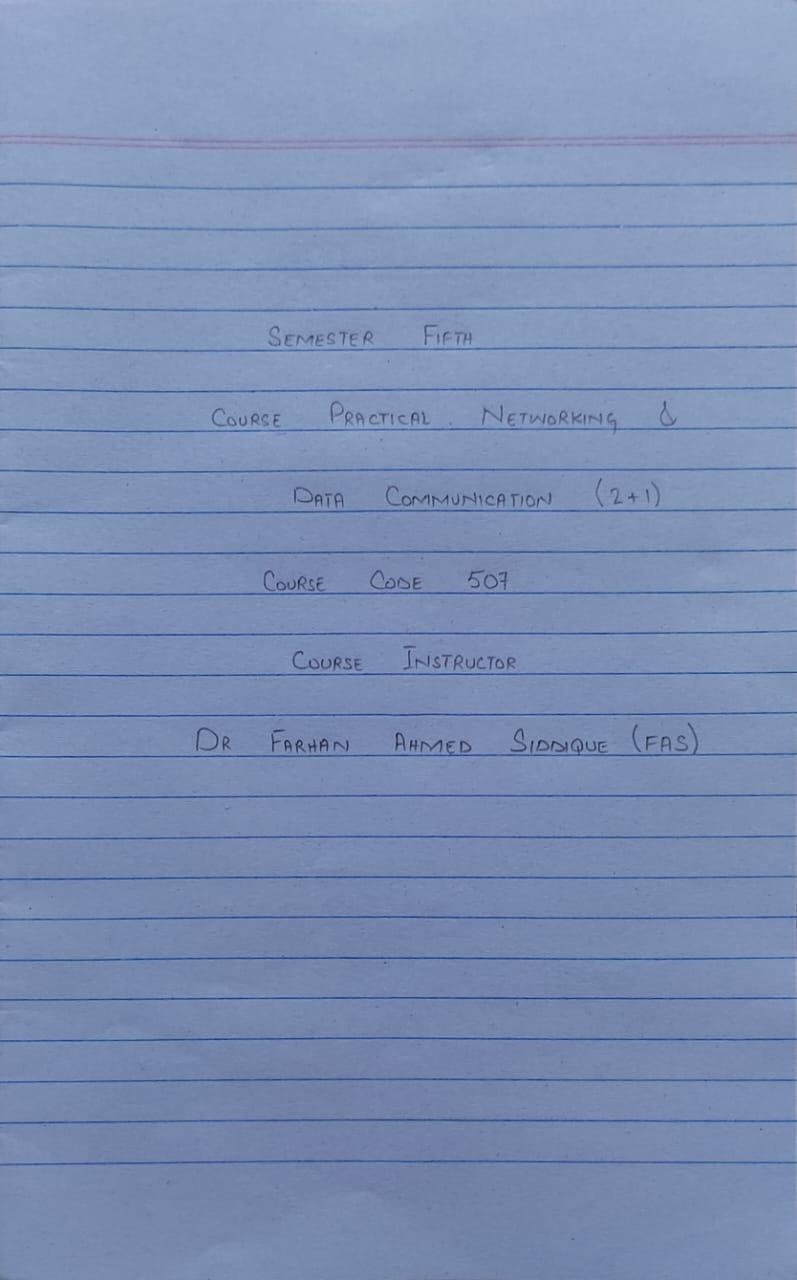 SEMESTER FIFTH
COURSE PRACTICAL NETWORKING &
DATA COMMUNICATION (2+1)
COURSE CODE 507
COURSE INSTRUCTOR
DR FARHAN AHMED SIDDIQUE (FAS)